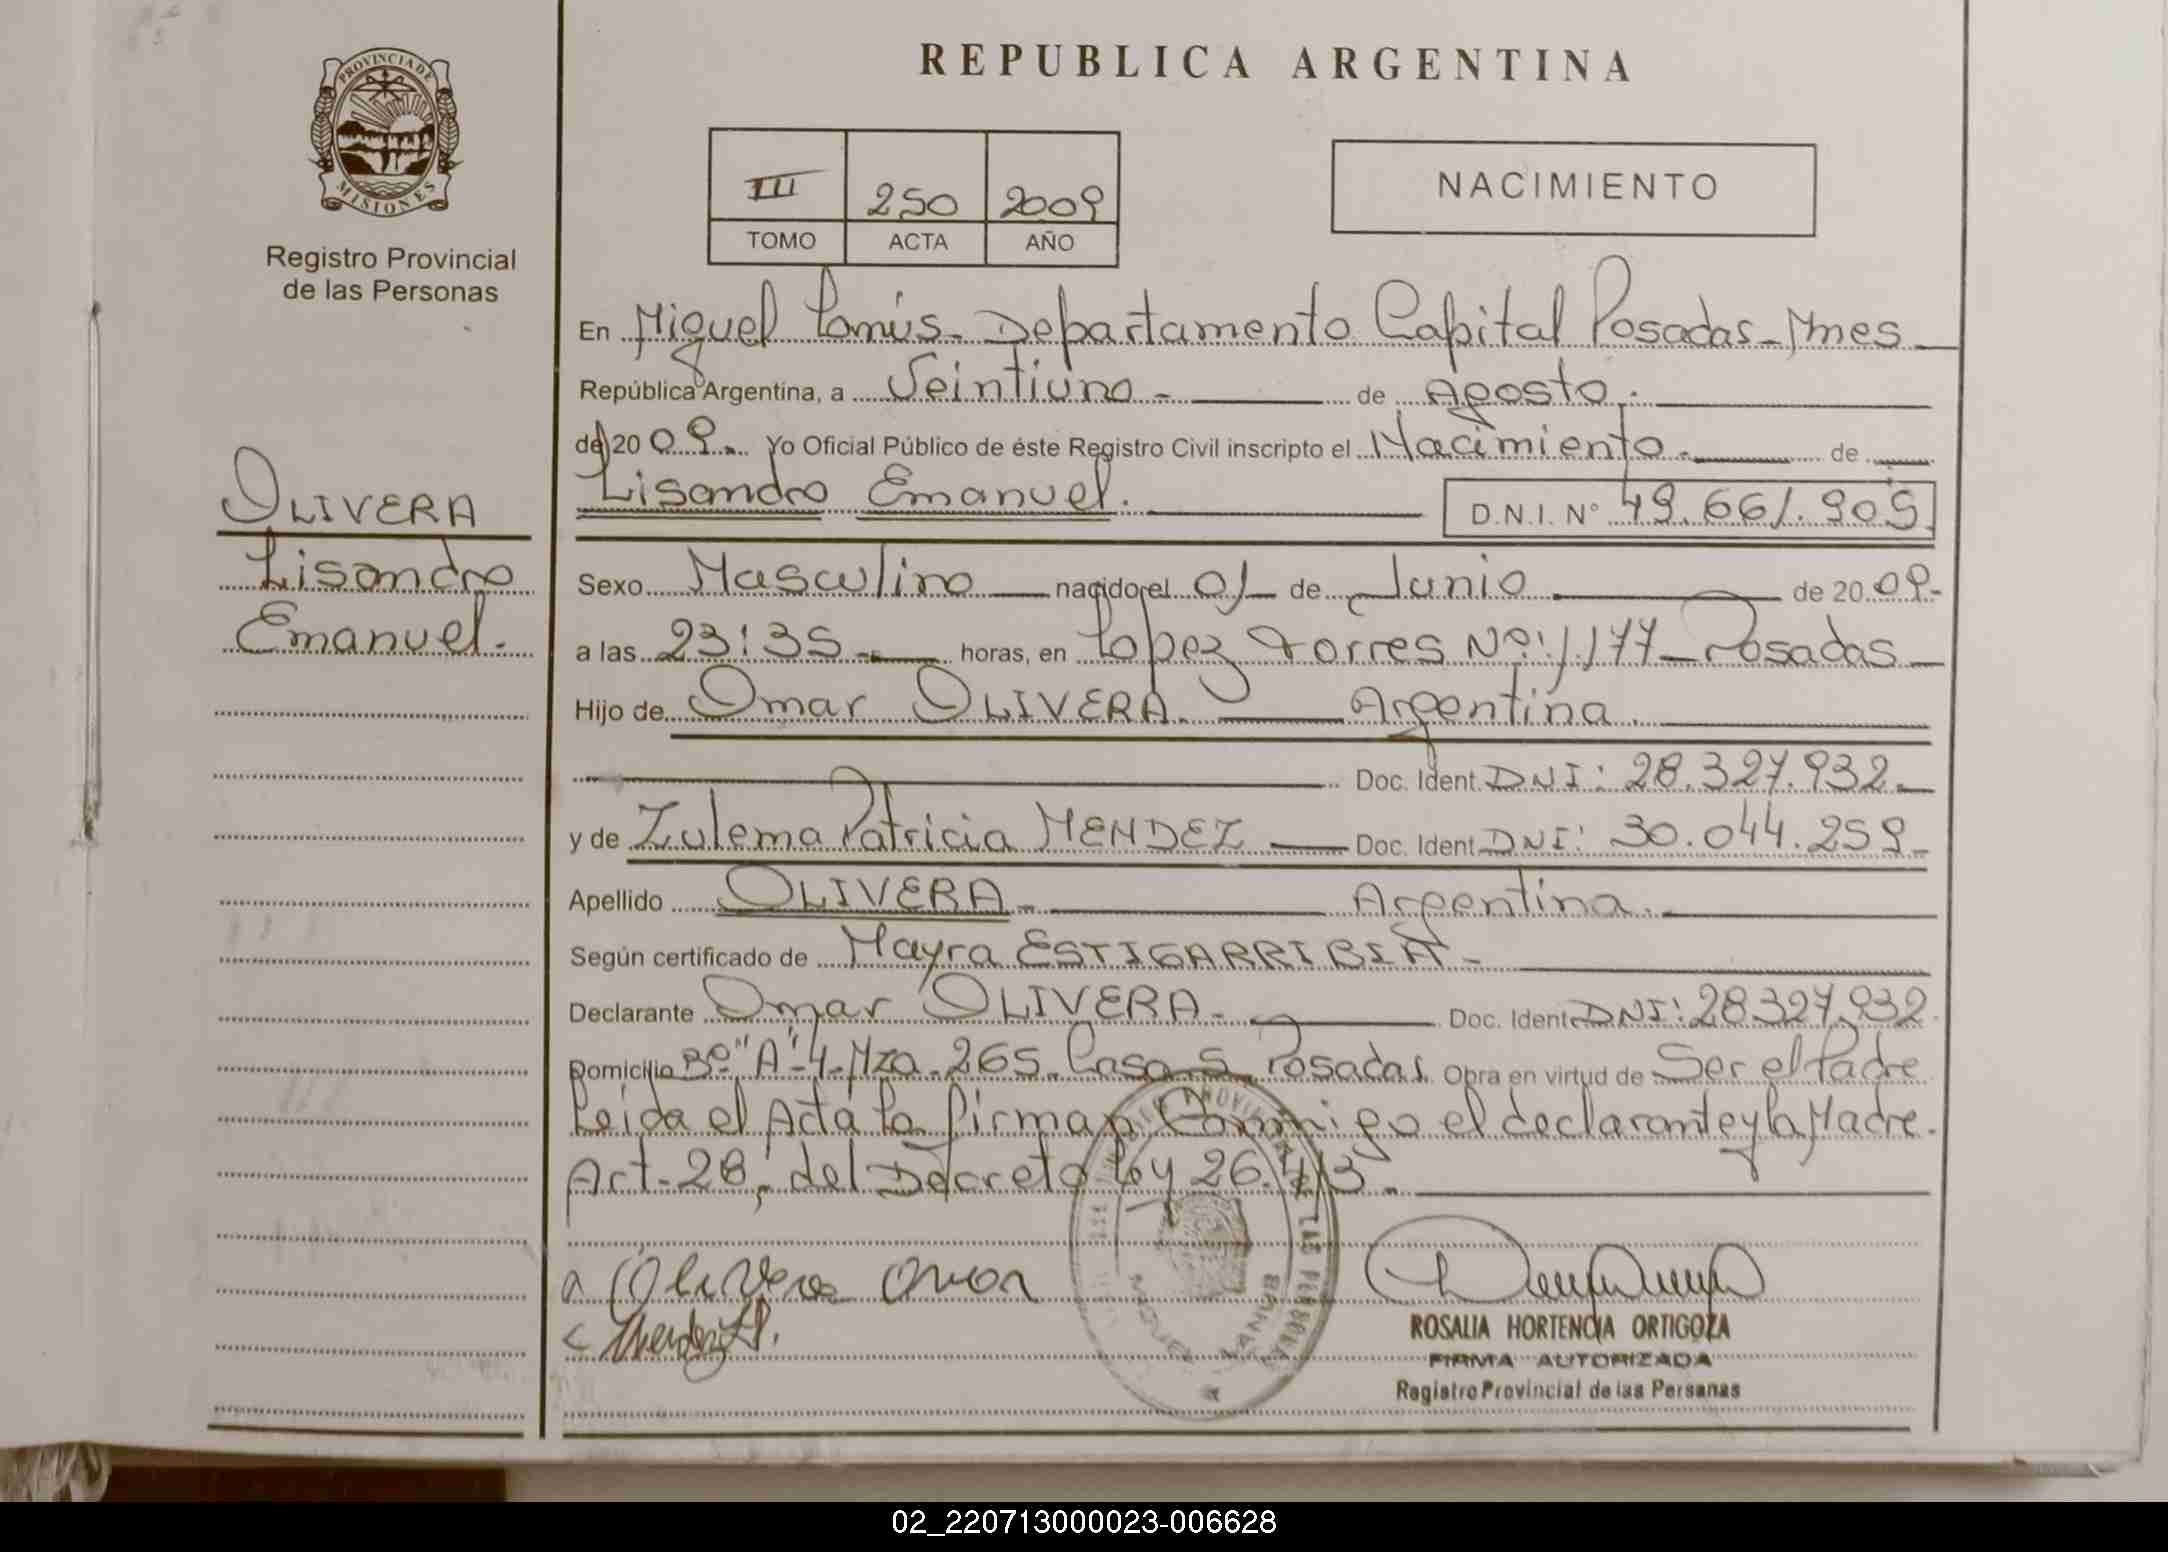 REPUBLICA ARGENTINA
PROVINCIA DE
MISIONES
Registro Provincial
de las Personas
III 250 2009
TOMO ACTA AÑO
NACIMIENTO
En Miguel Lanús - Departamento Capital Posadas - Mnes
República Argentina, a Veintiuno - de Agosto.
del 20 09. Yo Oficial Público de éste Registro Civil inscripto el Nacimiento - de
Lisandro Emanuel. D.N.I. N° 49.661.909
OLIVERA
Lisandro
Emanuel.
Sexo Masculino nacido el 01 de Junio de 20 09.
a las 23:35 horas, en Lopez Torres Nº: 1.177 - Posadas
Hijo de Omar OLIVERA. Argentina.
Doc. Ident. DNI: 28.327.932.
y de Zulema Patricia MENDEZ Doc. Ident. DNI: 30.044.259
Apellido OLIVERA - Argentina.
Según certificado de Mayra ESTIGARRIBIA -
Declarante Omar OLIVERA. Doc. Ident. DNI: 28.327.932.
Domicilio Bº "A"-4-Mza. 265. Casa 5 Posadas. Obra en virtud de Ser el Padre
Leida el Acta la firman Conmigo el declarante y la Madre.
Art. 28, del Decreto Ley 26.413.
Olivera Omar
Mendez Z.P.
MIGUEL LANUS
ROSALIA HORTENCIA ORTIGOZA
FIRMA AUTORIZADA
Registro Provincial de las Personas
02_220713000023-006628